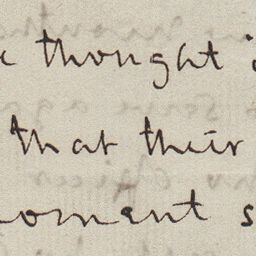 thought
that their
moment